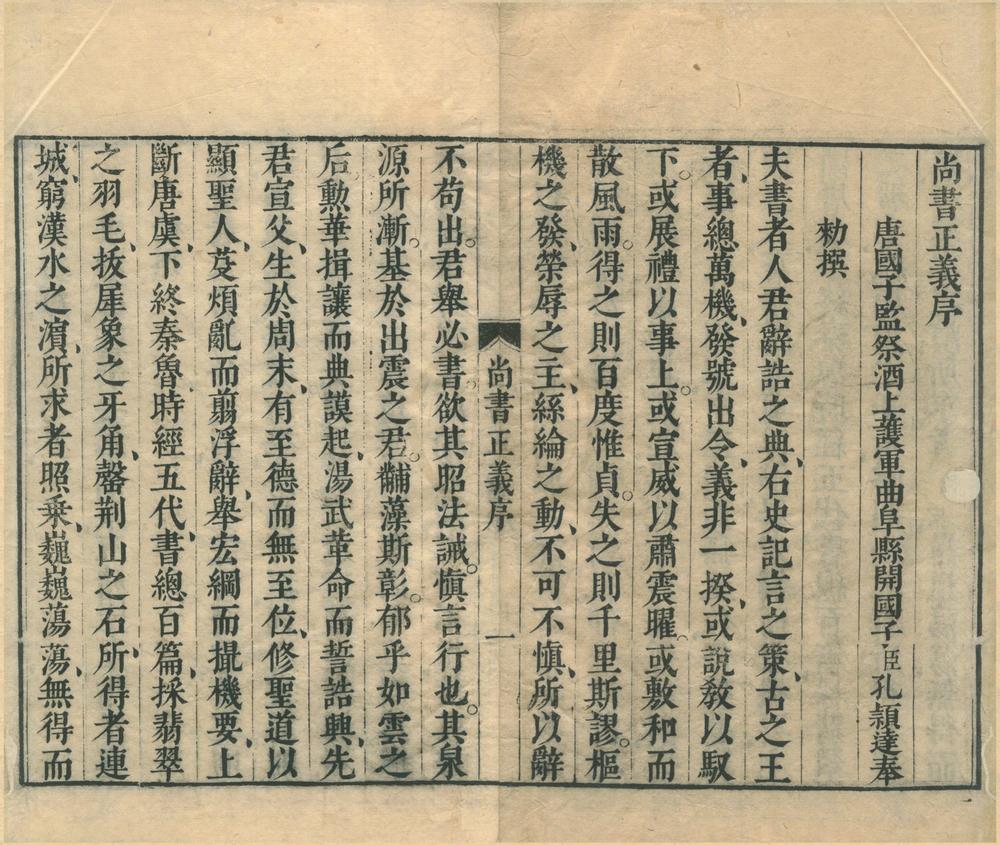 尚書正義序
唐國子監祭酒上護軍曲阜縣開國子臣孔穎達奉
勑撰
夫書者人君辭誥之典、右史記言之策、古之王
者、事總萬機、發號出令、義非一揆、或說教以馭
下。或展禮以事上。或宣威以肅震曜。或敷和而
散風雨。得之則百度惟貞。失之則千里斯謬。樞
機之發、榮辱之主、絲綸之動、不可不慎、所以辭
尚書正義序 一
不苟出。君舉必書。欲其昭法誡。慎言行也。其泉
源所漸。基於出震之君。黼藻斯彰。郁乎如雲之
后、勲華揖讓而典謨起、湯武革命而誓誥興、先
君宣父、生於周末、有至德而無至位、修聖道以
顯聖人、芟煩亂而翦浮辭、舉宏綱而撮機要、上
斷唐虞、下終秦魯、時經五代、書總百篇、採翡翠
之羽毛、拔犀象之牙角、罄荆山之石、所得者連
城、窮漢水之濵、所求者照乘、巍巍蕩蕩、無得而